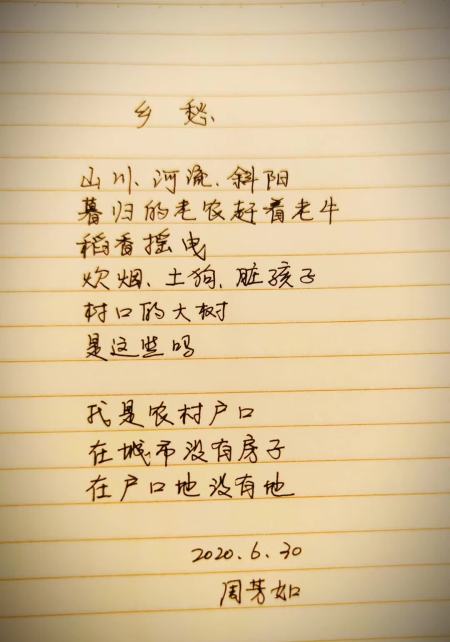 乡愁
山川、河流、斜阳
暮归的老农赶着老牛
稻香摇曳
炊烟、土狗、脏孩子
村口的大树
是这些吗
我是农村户口
在城市没有房子
在户口地没有地
2020.6.30
周芳如